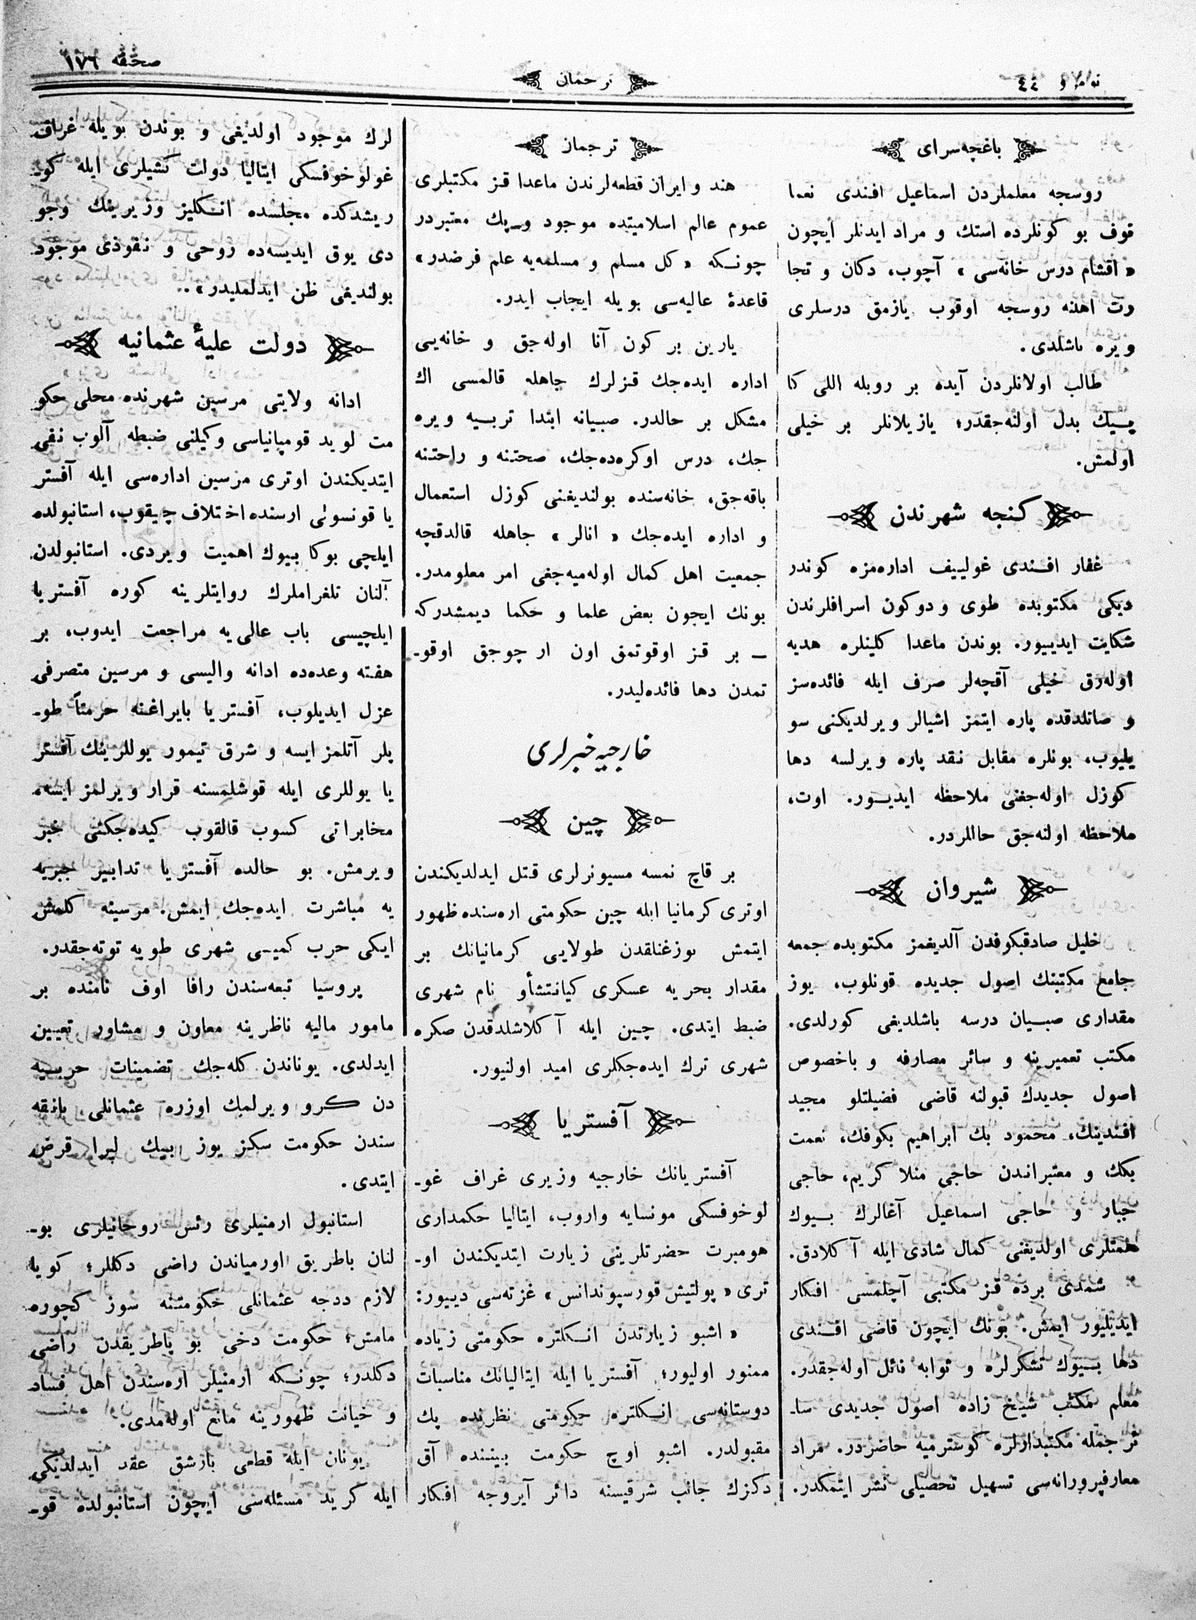 نومرو ٤٤
ترجمان
صحفه ١٧٦
باغچه‌سرای
روسجه معلملردن اسماعیل افندی نعما
قوف بو كونلرده استك و مراد ایدنلر ایچون
« آقشام درس خانه‌سی » آچوب، دكان و تجا
رت اهلنه روسجه اوقوب یازمق درسلری
ویره باشلدی.
طالب اولانلردن آیده بر روبله اللی كا
پیك بدل اولنه‌جقدر؛ یازیلانلر بر خیلی
اولمش.
كنجه شهرندن
غفار افندی غولییف اداره‌مزه كوندر
دیكی مكتوبده طوی و دوكون اسرافلرندن
شكایت ایدییور. بوندن ماعدا كلینلره هدیه
اوله‌رق خیلی آقچه‌لر صرف ایله فائده‌سز
و صاتلدقده پاره ایتمز اشیالر ویرلدیكنی سو
یلیوب، بونلره مقابل نقد پاره ویرلسه دها
كوزل اوله‌جغنی ملاحظه ایدیور. اوت،
ملاحظه اولنه‌جق حاللردر.
شیروان
خلیل صادقبكوفدن آلدیغمز مكتوبده جمعه
جامع مكتبنك اصول جدیده قونلوب، یوز
مقداری صبیان درسه باشلدیغی كورلدی.
مكتب تعمیرینه و سائر مصارفه و باخصوص
اصول جدیدك قبولنه قاضی فضیلتلو مجید
افندینك، محمود بك ابراهیم بكوفك، نعمت
بكك و معتبراندن حاجی منلا كریم، حاجی
جبار و حاجی اسماعیل آغالرك بیوك
همتلری اولدیغنی كمال شادی ایله آكلادق.
شمدی برده قز مكتبی آچلمسی افكار
ایدیلیور ایمش. بونك ایچون قاضی افندی
دها بیوك تشكرلره و ثوابه نائل اوله‌جقدر.
معلم مكتب شیخ زاده اصول جدیدی سا-
ئر جمله مكتبدارلره كوسترمیه حاضردر. مراد
معارفپرورانه‌سی تسهیل تحصیلی نشر ایتمكدر.
ترجمان
هند و ایران قطعه‌لرندن ماعدا قز مكتبلری
عموم عالم اسلامیتده موجود و پك معتبردر
چونكه « كل مسلم و مسلمه‌یه علم فرضدر»
قاعدۀ عالیه‌سی بویله ایجاب ایدر.
یارین بر كون آنا اوله‌جق و خانه‌یی
اداره ایده‌جك قزلرك جاهله قالمسی اك
مشكل بر حالدر. صبیانه ابتدا تربیه ویره
جك، درس اوكره‌ده‌جك، صحتنه و راحتنه
باقه‌جق، خانه‌سنده بولندیغنی كوزل استعمال
و اداره ایده‌جك « انالر » جاهله قالدقچه
جمعیت اهل كمال اوله‌میه‌جغی امر معلومدر.
بونك ایچون بعض علما و حكما دیمشدركه
— بر قز اوقوتمق اون ار چوجق اوقو-
تمدن دها فائده‌لیدر.
خارجیه خبرلری
چین
بر قاچ نمسه مسیونرلری قتل ایدلدیكندن
اوتری كرمانیا ایله چین حكومتی اره‌سنده ظهور
ایتمش بوزغنلقدن طولایی كرمانیانك بر
مقدار بحریه عسكری كیانتشأو نام شهری
ضبط ایتدی. چین ایله آكلاشلدقدن صكره
شهری ترك ایده‌جكلری امید اولنیور.
آفستریا
آفستریانك خارجیه وزیری غراف غو-
لوخوفسكی مونسایه واروب، ایتالیا حكمداری
هومبرت حضرتلرینی زیارت ایتدیكندن او-
تری « پولتیش قورسپوندانس » غزته‌سی دییور:
« اشبو زیارتدن انكلتره حكومتی زیاده
ممنور اولیور؛ آفستریا ایله ایتالیانك مناسبات
دوستانه‌سی انكلتره حكومتی نظرنده پك
مقبولدر. اشبو اوچ حكومت بیننده آق
دكزك جانب شرقیسنه دائر آیروجه افكار
لرك موجود اولدیغی و بوندن بویله غراف
غولوخوفسكی ایتالیا دولت كشیلری ایله كو-
ریشدكده مجلسده انكلیز وزیرینك وجو
دی یوق ایدیسه‌ده روحی و نفوذی موجود
بولندیغی ظن ایدلملیدر»..
دولت علیۀ عثمانیه
ادانه ولایتی مرسین شهرنده محلی حكو
مت لوید قومپانیاسی وكیلنی ضبطه آلوب نفی
ایتدیكندن اوتری مرسین اداره‌سی ایله آفستر
یا قونسولی ارسنده اختلاف چیقوب، استانبولده
ایلچی بوكا بیوك اهمیت ویردی. استانبولدن
آلنان تلغراملرك روایتلرینه كوره آفستریا
ایلچیسی باب عالی‌یه مراجعت ایدوب، بر
هفته وعده‌ده ادانه والیسی و مرسین متصرفی
عزل ایدیلوب، آفستریا بایراغنه حرمتاً طو-
پلر آتلمز ایسه و شرق تیمور یوللرینك آفستر
یا یوللری ایله قوشلمسنه قرار ویرلمز ایسه،
مخابراتی كسوب قالقوب كیده‌جكنی خبر
ویرمش. بو حالده آفستریا تدابیر جبریه
یه مباشرت ایده‌جك ایمش. مرسینه كلمش
ایكی حرب كمیسی شهری طوپه توته‌جقدر.
پروسیا تبعه‌سندن رافا اوف نامنده بر
مامور مالیه ناظرینه معاون و مشاور تعیین
ایدلدی. یوناندن كله‌جك تضمینات حربیه
دن كرو ویرلمك اوزره عثمانلی بانقه
سندن حكومت سكز یوز بیك لیرا قرض
ایتدی.
استانبول ارمنیلری رئس روحانیلری بو-
لنان باطریق اورمیاندن راضی دكللر؛ كویا
لازم ددجه عثمانلی حكومتنه سوز كچوره
مامش؛ حكومت دخی بو پاطریقدن راضی
دكلدر؛ چونكه ارمنیلر اره‌سندن اهل فساد
و خیانت ظهورینه مانع اوله‌مدی.
یونان ایله قطعی بازشق عقد ایدلدیكی
ایله كرید مسئله‌سی ایچون استانبولده قو-